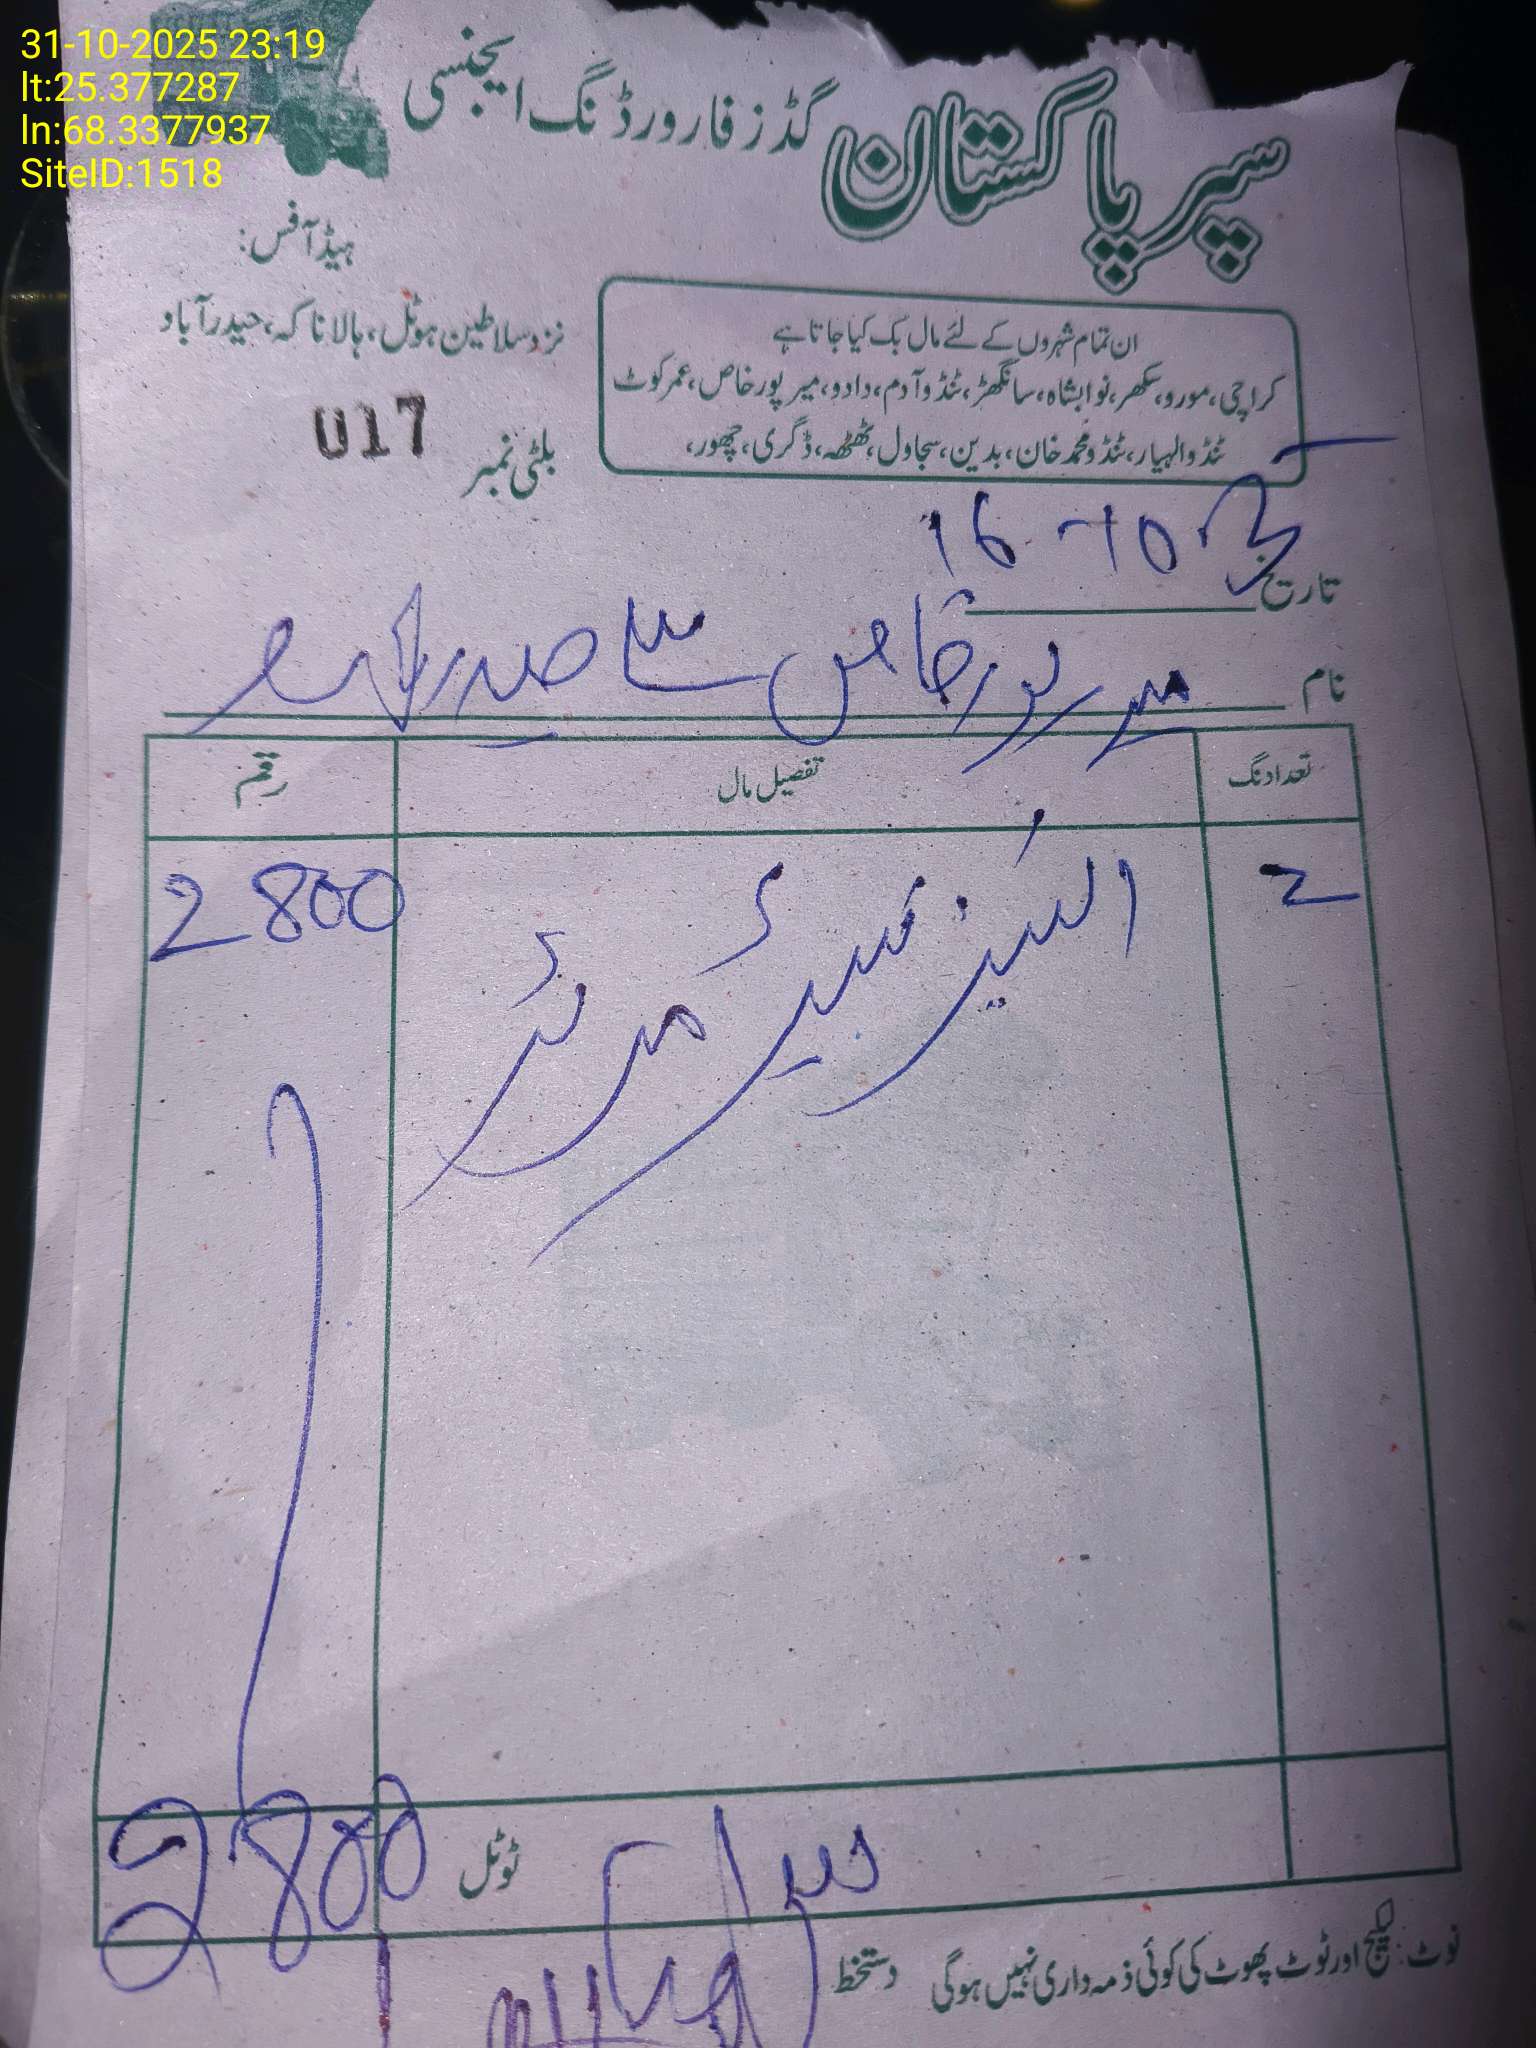 31-10-2025 23:19
lt:25.377287
ln:68.3377937
SiteID:1518
سپر پاکستان گڈز فارورڈنگ ایجنسی
ہیڈ آفس:
نزد سلاطین ہوٹل، ہالا ناکہ، حیدرآباد
ان تمام شہروں کے لئے مال بک کیا جاتا ہے
کراچی، مورو، سکھر، نوابشاہ، سانگھڑ، ٹنڈوآدم، دادو، میرپورخاص، عمرکوٹ
ٹنڈوالہیار، ٹنڈومحمدخان، بدین، سجاول، ٹھٹھہ، ڈگری، چھور،
بلٹی نمبر 017
تاریخ 16-10
نام میرپورخاص سے حیدرآباد
تعداد نگ تفصیل مال رقم
2 2800
ٹوٹل 2800
نوٹ: لیکیج اور ٹوٹ پھوٹ کی کوئی ذمہ داری نہیں ہوگی دستخط